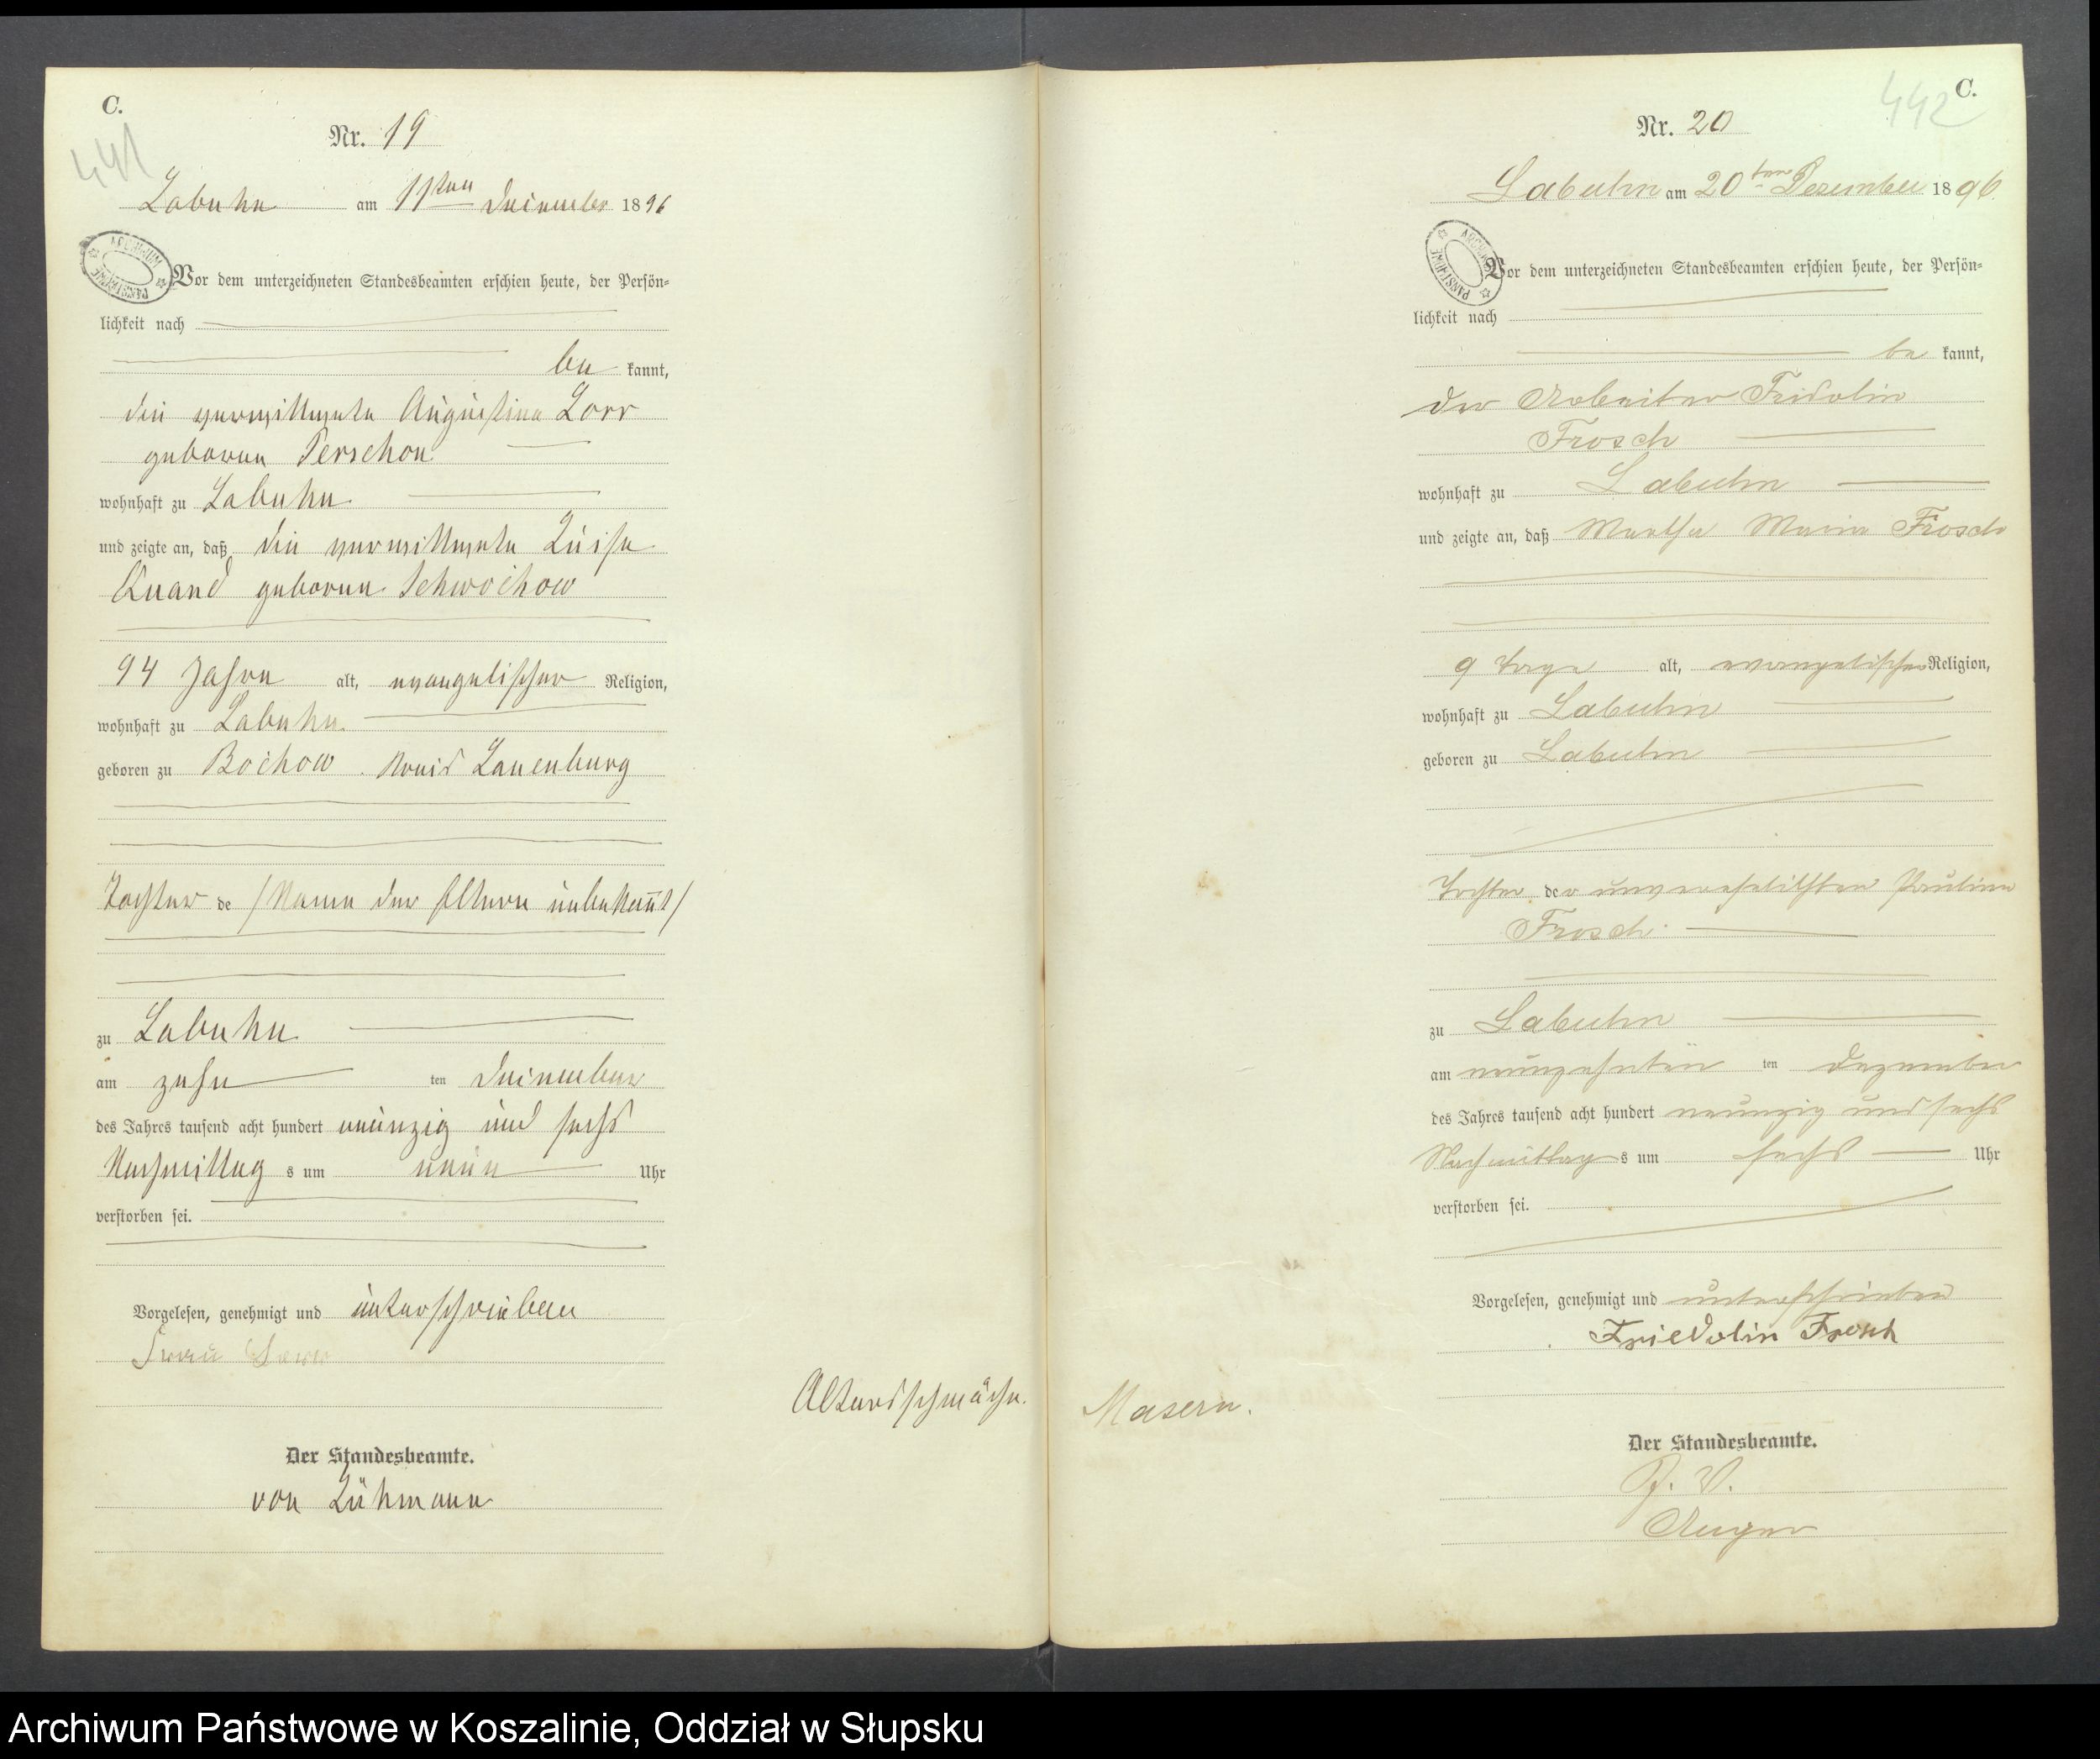 C.
441
Nr. 19
Labuhn am 11ten Dezember 1896
ARCHIWUM PAŃSTWOWE
Vor dem unterzeichneten Standesbeamten erschien heute, der Persön-
lichkeit nach
be kannt,
die verwittwete Auguste Lorr
geborene Perschon
wohnhaft zu Labuhn
und zeigte an, daß die verwittwete Luise
Quand geborene Schwochow
94 Jahre alt, evangelischer Religion,
wohnhaft zu Labuhn
geboren zu Bochow Kreis Lauenburg
Tochter de /Name der Eltern unbekannt/
zu Labuhn
am zehn ten Dezember
des Jahres tausend acht hundert neunzig und sechs
Nachmittag s um neun Uhr
verstorben sei.
Vorgelesen, genehmigt und unterschrieben
Frau Lorr
Altersschwäche.
Der Standesbeamte.
von Lühmann
C.
442
Nr. 20
Labuhn am 20ten Dezember 1896.
ARCHIWUM PAŃSTWOWE
Vor dem unterzeichneten Standesbeamten erschien heute, der Persön-
lichkeit nach
be kannt,
der Arbeiter Fridolin
Frosch
wohnhaft zu Labuhn
und zeigte an, daß Martha Maria Frosch
9 Tage alt, evangelischer Religion,
wohnhaft zu Labuhn
geboren zu Labuhn
Tochter der unverehelichten Pauline
Frosch
zu Labuhn
am neunzehnten ten Dezember
des Jahres tausend acht hundert neunzig und sechs
Nachmittag s um sechs Uhr
verstorben sei.
Vorgelesen, genehmigt und unterschrieben
Friedolin Frosch
Masern.
Der Standesbeamte.
J. V.
Archiwum Państwowe w Koszalinie, Oddział w Słupsku